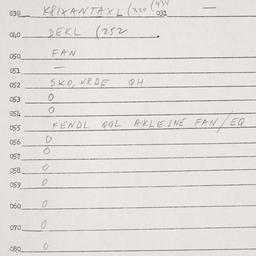 030 KRIXANTAXL (320 (434 031 —
040 DEKL (252
050 FAN
051 —
052 SKO, VRDE QH
053 0
054 0
055 FENDL QQL AKLEJNE FAN/EQ
056 0
057 0
058 0
059 0
060 0
070 0
080 0